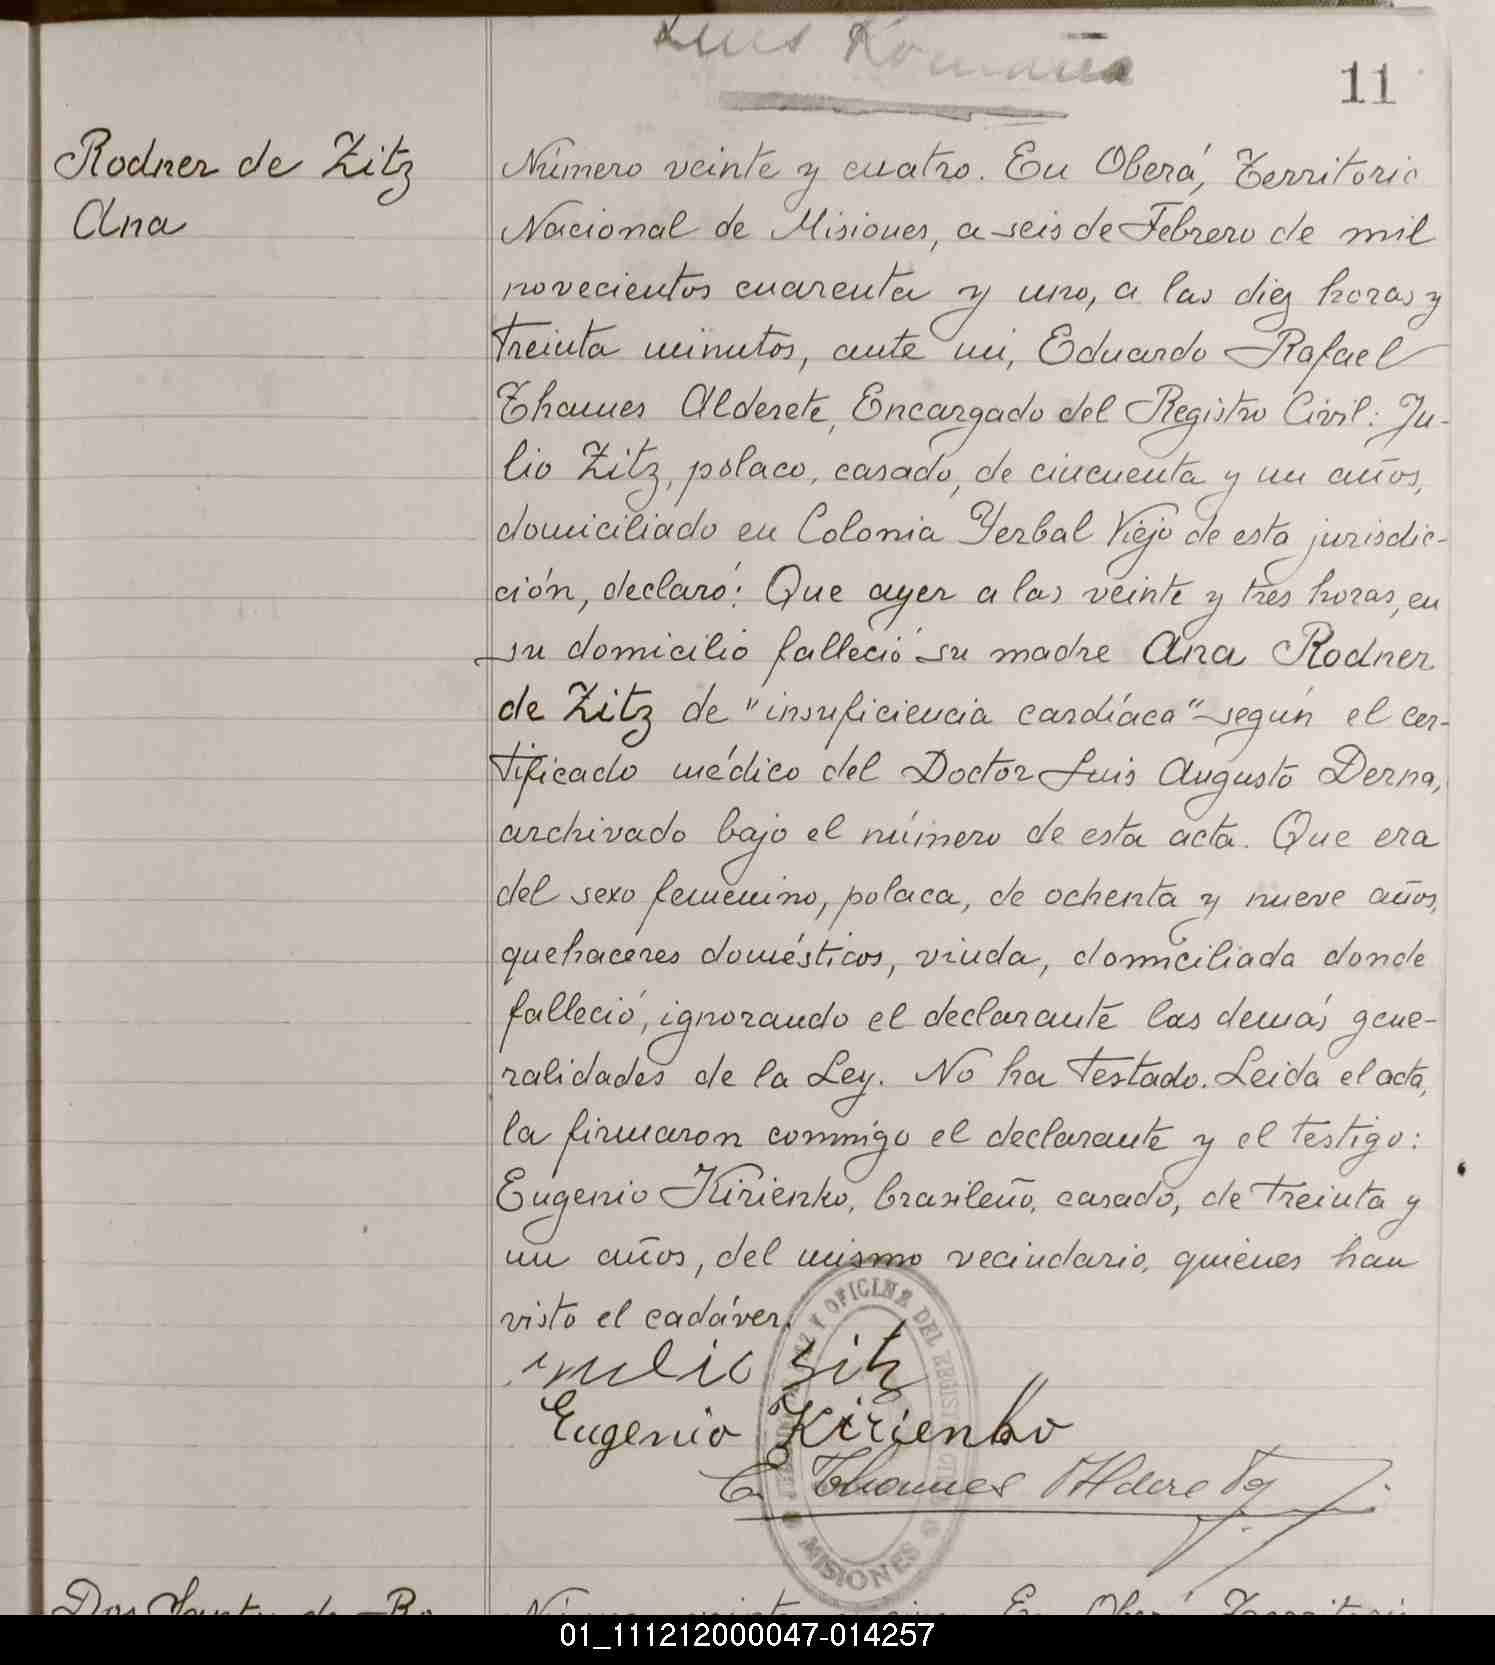 Luis Romaña
11
Rodner de Zitz
Ana
Número veinte y cuatro. En Oberá, Territorio
Nacional de Misiones, a seis de Febrero de mil
novecientos cuarenta y uno, a las diez horas y
treinta minutos, ante mi, Eduardo Rafael
Thames Alderete, Encargado del Registro Civil: Ju-
lio Zitz, polaco, casado, de cincuenta y un años,
domiciliado en Colonia Yerbal Viejo de esta jurisdic-
ción, declaró: Que ayer a las veinte y tres horas, en
su domicilio falleció su madre Ana Rodner
de Zitz de "insuficiencia cardíaca" según el cer-
tificado médico del Doctor Luis Augusto Derna,
archivado bajo el número de esta acta. Que era
del sexo femenino, polaca, de ochenta y nueve años,
quehaceres domésticos, viuda, domiciliada donde
falleció, ignorando el declarante las demás gene-
ralidades de la Ley. No ha testado. Leida el acta,
la firmaron conmigo el declarante y el testigo:
Eugenio Kirienko, brasileño, casado, de treinta y
un años, del mismo vecindario, quienes han
visto el cadáver.
Julio Sitz
Eugenio Kirienko
E. Thames Alderete
Y OFICINA DEL REGISTRO
MISIONES
Dos Santos de
Número veinte y cinco. En Oberá, Territorio
01_111212000047-014257